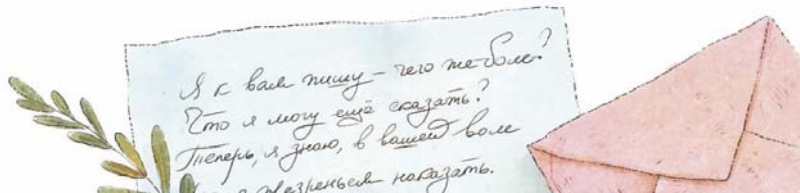 Я к вам пишу – чего же боле?
Что я могу ещё сказать?
Теперь, я знаю, в вашей воле
презреньем наказать.